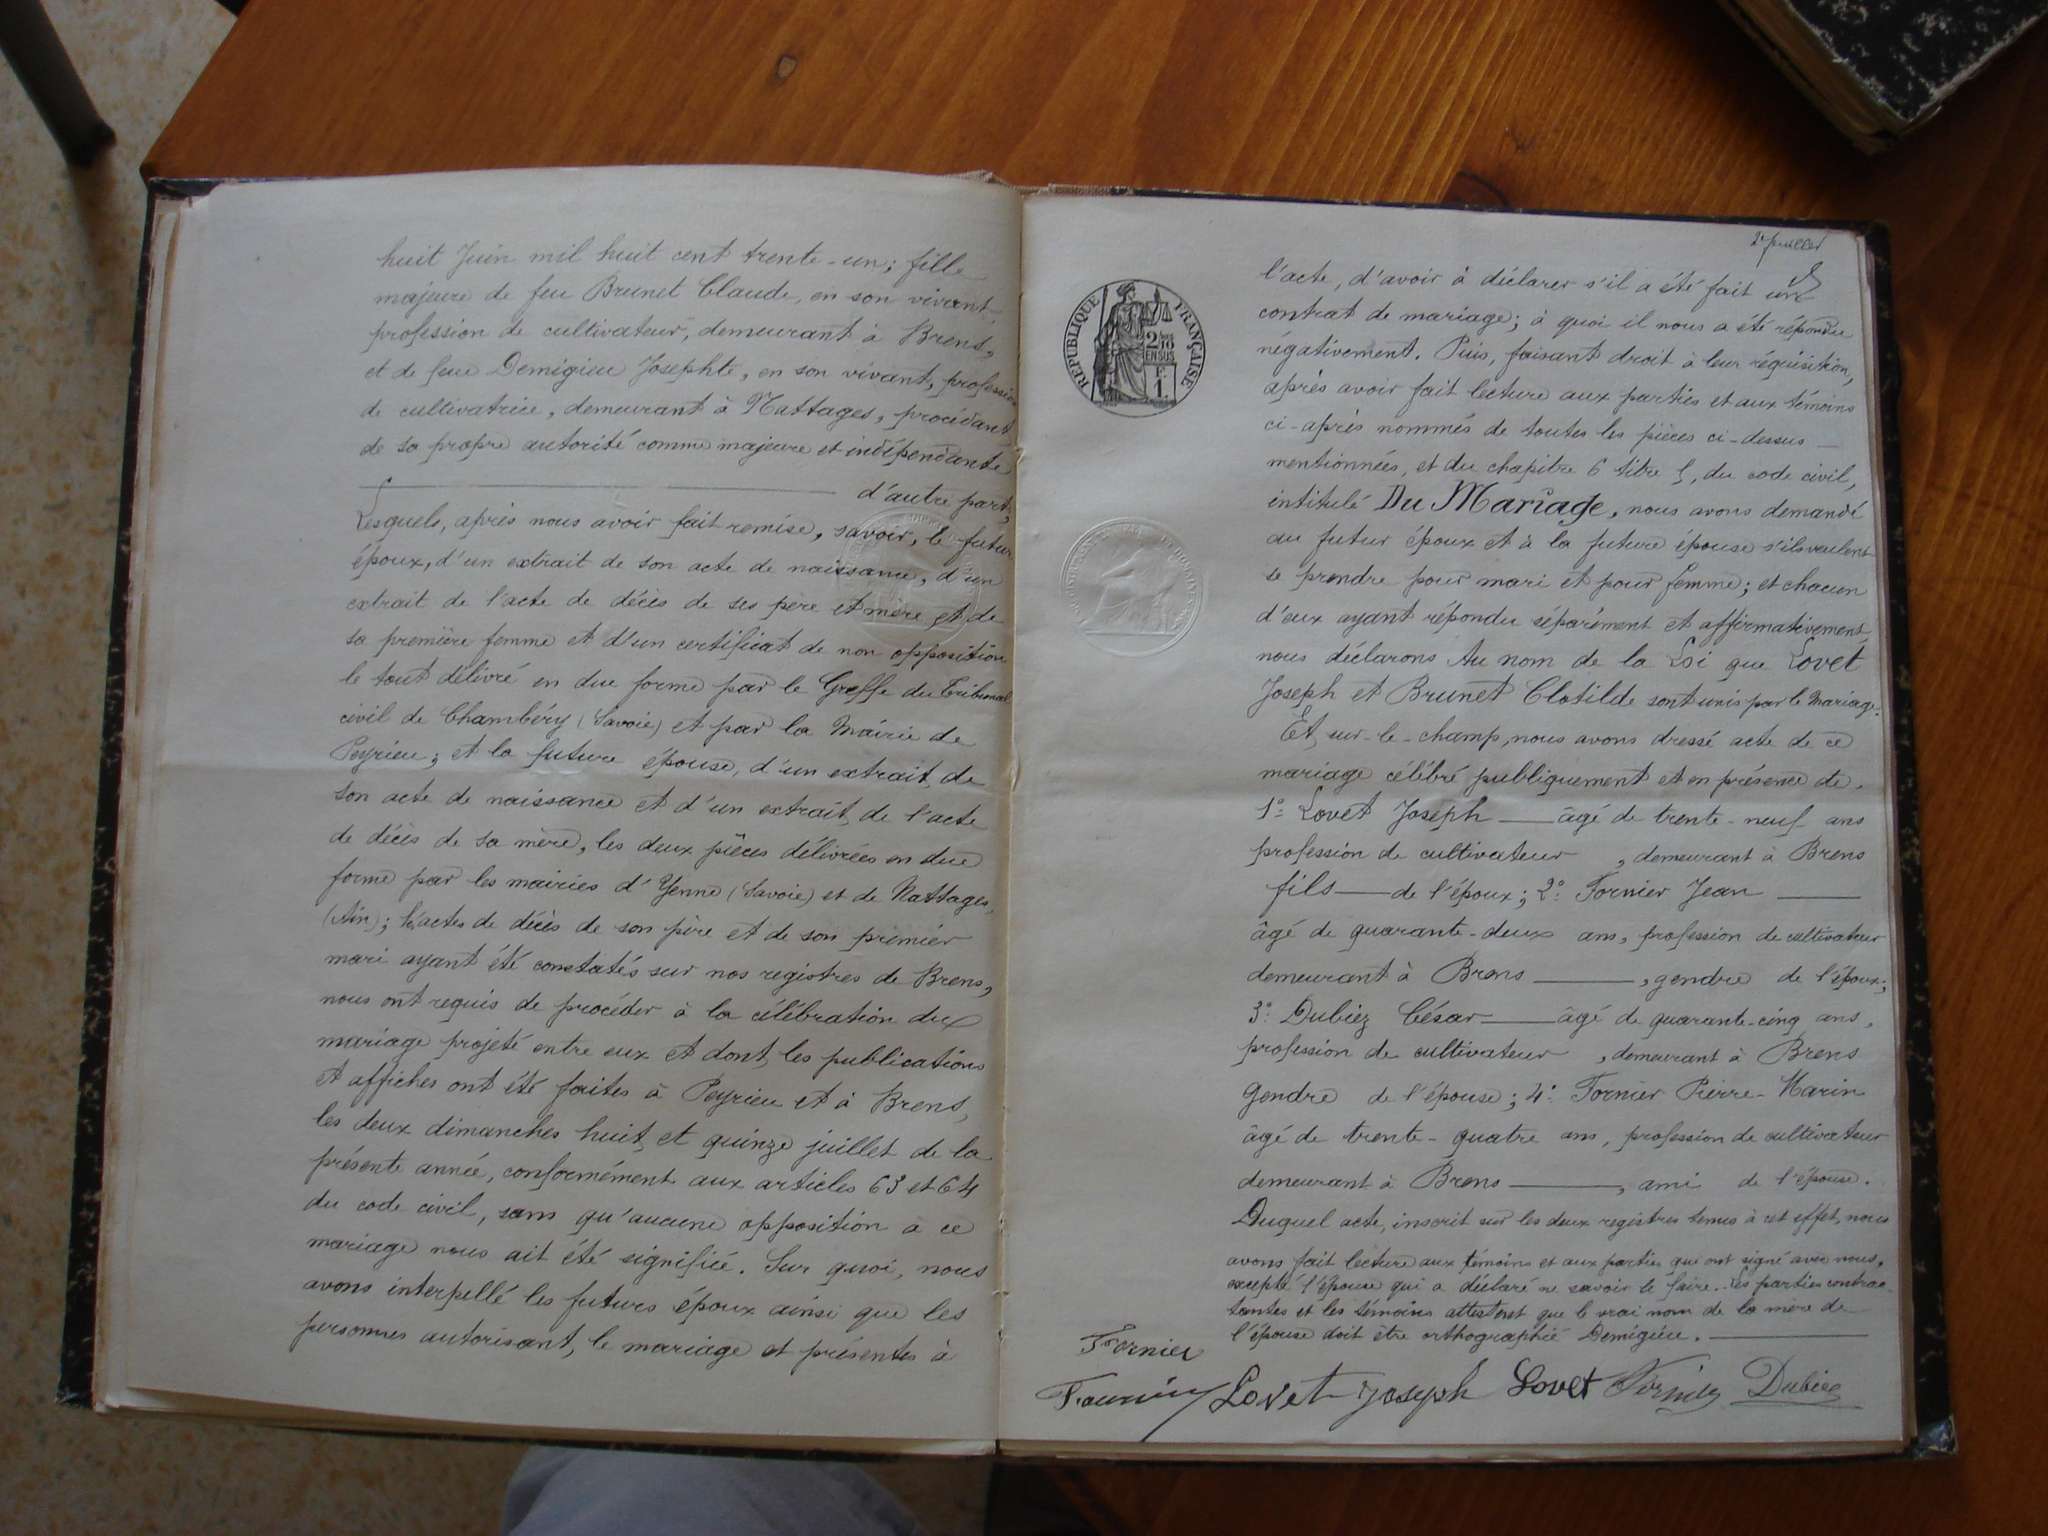 huit Juin mil huit cent trente-un; fille
majeure de feu Brunet Claude, en son vivant,
profession de cultivateur, demeurant à Brens,
et de feue Demigieu Josephte, en son vivant, profession
de cultivatrice, demeurant à Nattages, procédant
de sa propre autorité comme majeure et indépendante
d'autre part,
Lesquels, après nous avoir fait remise, savoir, le futur
époux, d'un extrait de son acte de naissance, d'un
extrait de l'acte de décès de ses père et mère et de
sa première femme et d'un certificat de non opposition
le tout délivré en due forme par le Greffe du Tribunal
civil de Chambéry (Savoie) et par la Mairie de
Peyrieu; et la future épouse, d'un extrait de
son acte de naissance et d'un extrait de l'acte
de décès de sa mère, les deux pièces délivrées en due
forme par les mairies d'Yenne (Savoie) et de Nattages,
(Ain); actes de décès de son père et de son premier
mari ayant été constatés sur nos registres de Brens,
nous ont requis de procéder à la célébration du
mariage projeté entre eux et dont les publications
et affiches ont été faites à Peyrieu et à Brens,
les deux dimanches huit et quinze juillet de la
présente année, conformément aux articles 63 et 64
du code civil, sans qu'aucune opposition à ce
mariage nous ait été signifiée. Sur quoi, nous
avons interpellé les futurs époux ainsi que les
personnes autorisant, le mariage et présentes à
REPUBLIQUE FRANÇAISE
2/10
EN SUS
1 F.
l'acte, d'avoir à déclarer s'il a été fait un
contrat de mariage; à quoi il nous a été répondu
négativement. Puis, faisant droit à leur réquisition,
après avoir fait lecture aux parties et aux témoins
ci-après nommés de toutes les pièces ci-dessus
mentionnées, et du chapitre 6 titre 5, du code civil,
intitulé Du Mariage, nous avons demandé
au futur époux et à la future épouse s'ils veulent
se prendre pour mari et pour femme; et chacun
d'eux ayant répondu séparément et affirmativement,
nous déclarons Au nom de la Loi que Lovet
Joseph et Brunet Clotilde sont unis par le Mariage.
Et, sur-le-champ, nous avons dressé acte de ce
mariage célébré publiquement et en présence de
1º: Lovet Joseph — âgé de trente-neuf ans
profession de cultivateur, demeurant à Brens
fils — de l'époux; 2º: Fornier Jean —
âgé de quarante-deux ans, profession de cultivateur
demeurant à Brens —, gendre de l'époux;
3º: Dubiez César — âgé de quarante-cinq ans,
profession de cultivateur, demeurant à Brens
Gendre de l'épouse; 4º: Fornier Pierre-Marin
âgé de trente-quatre ans, profession de cultivateur
demeurant à Brens —, ami de l'épouse.
Duquel acte, inscrit sur les deux registres tenus à cet effet, nous
avons fait lecture aux témoins et aux parties qui ont signé avec nous,
excepté l'épouse qui a déclaré ne savoir le faire. Les parties contrac-
tantes et les témoins attestent que le vrai nom de la mère de
l'épouse doit être orthographié Demigieu. —
Fornier
Lovet Joseph Lovet Fornier Dubiez